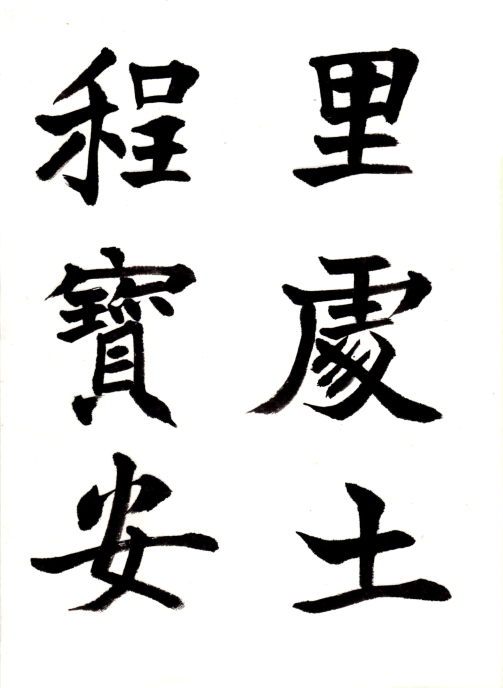 里處土
程寶安